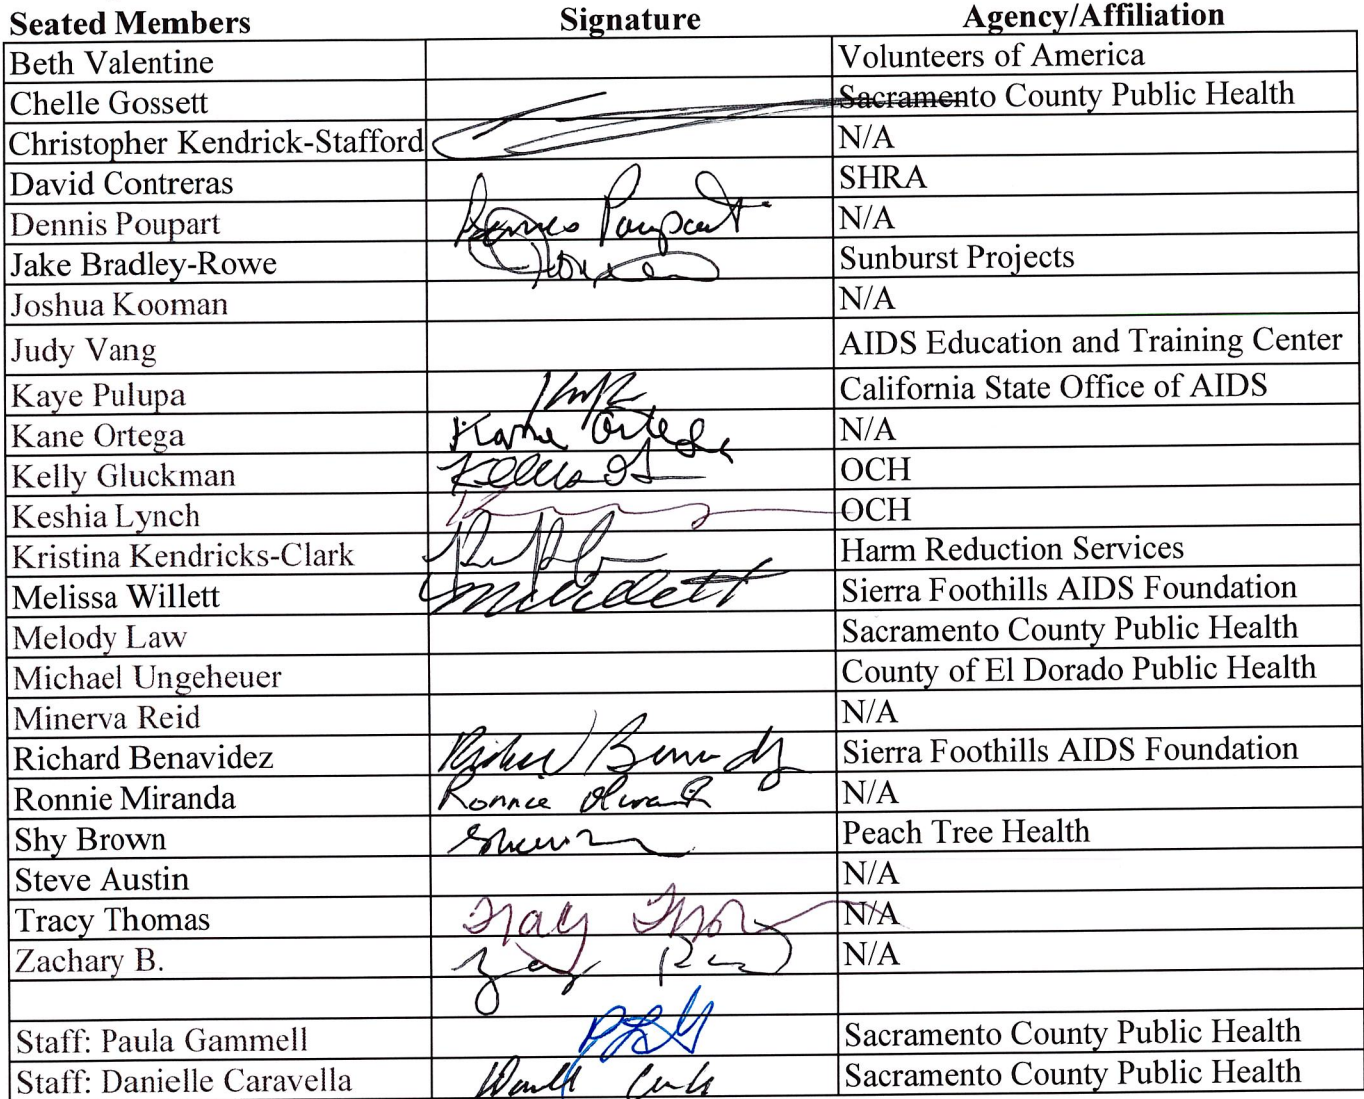 Seated Members Signature Agency/Affiliation
Beth Valentine Volunteers of America
Chelle Gossett Sacramento County Public Health
Christopher Kendrick-Stafford N/A
David Contreras SHRA
Dennis Poupart Dennis Poupart N/A
Jake Bradley-Rowe Sunburst Projects
Joshua Kooman N/A
Judy Vang AIDS Education and Training Center
Kaye Pulupa California State Office of AIDS
Kane Ortega Kane Ortega N/A
Kelly Gluckman OCH
Keshia Lynch OCH
Kristina Kendricks-Clark Harm Reduction Services
Melissa Willett MWillett Sierra Foothills AIDS Foundation
Melody Law Sacramento County Public Health
Michael Ungeheuer County of El Dorado Public Health
Minerva Reid N/A
Richard Benavidez Sierra Foothills AIDS Foundation
Ronnie Miranda Ronnie N/A
Shy Brown Peach Tree Health
Steve Austin N/A
Tracy Thomas Tracy N/A
Zachary B. N/A
Staff: Paula Gammell Sacramento County Public Health
Staff: Danielle Caravella Sacramento County Public Health